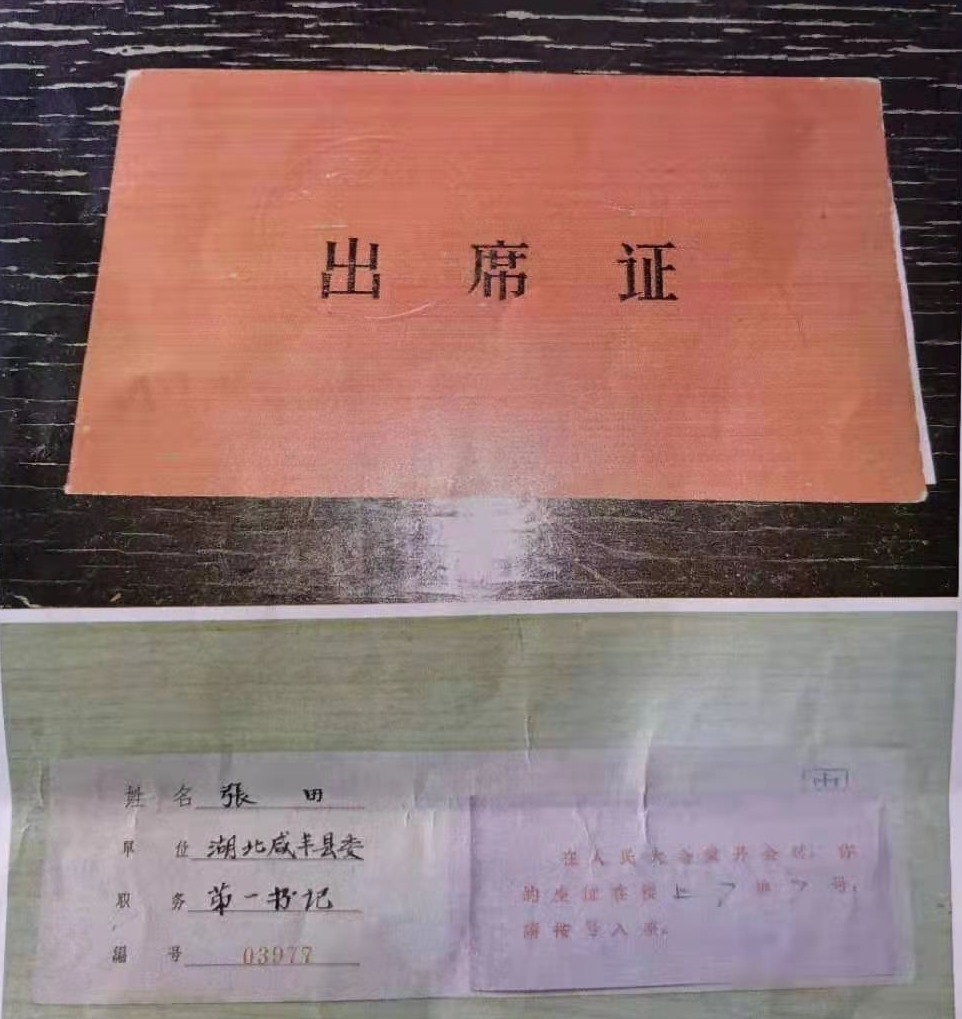 出席证
姓名 張田
单位 湖北咸丰县委
职务 第一书记
编号 03977
中
在人民大会堂开会时,你
的座位在楼上7排7号,
请按号入座。